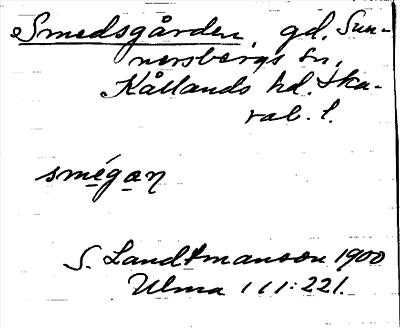 Smedsgården, gd, Sun-
nersbergs sn,
Kållands hd. Ska-
rab. l.
smégan
S. Landtmanson 1900
Ulma 111:221.